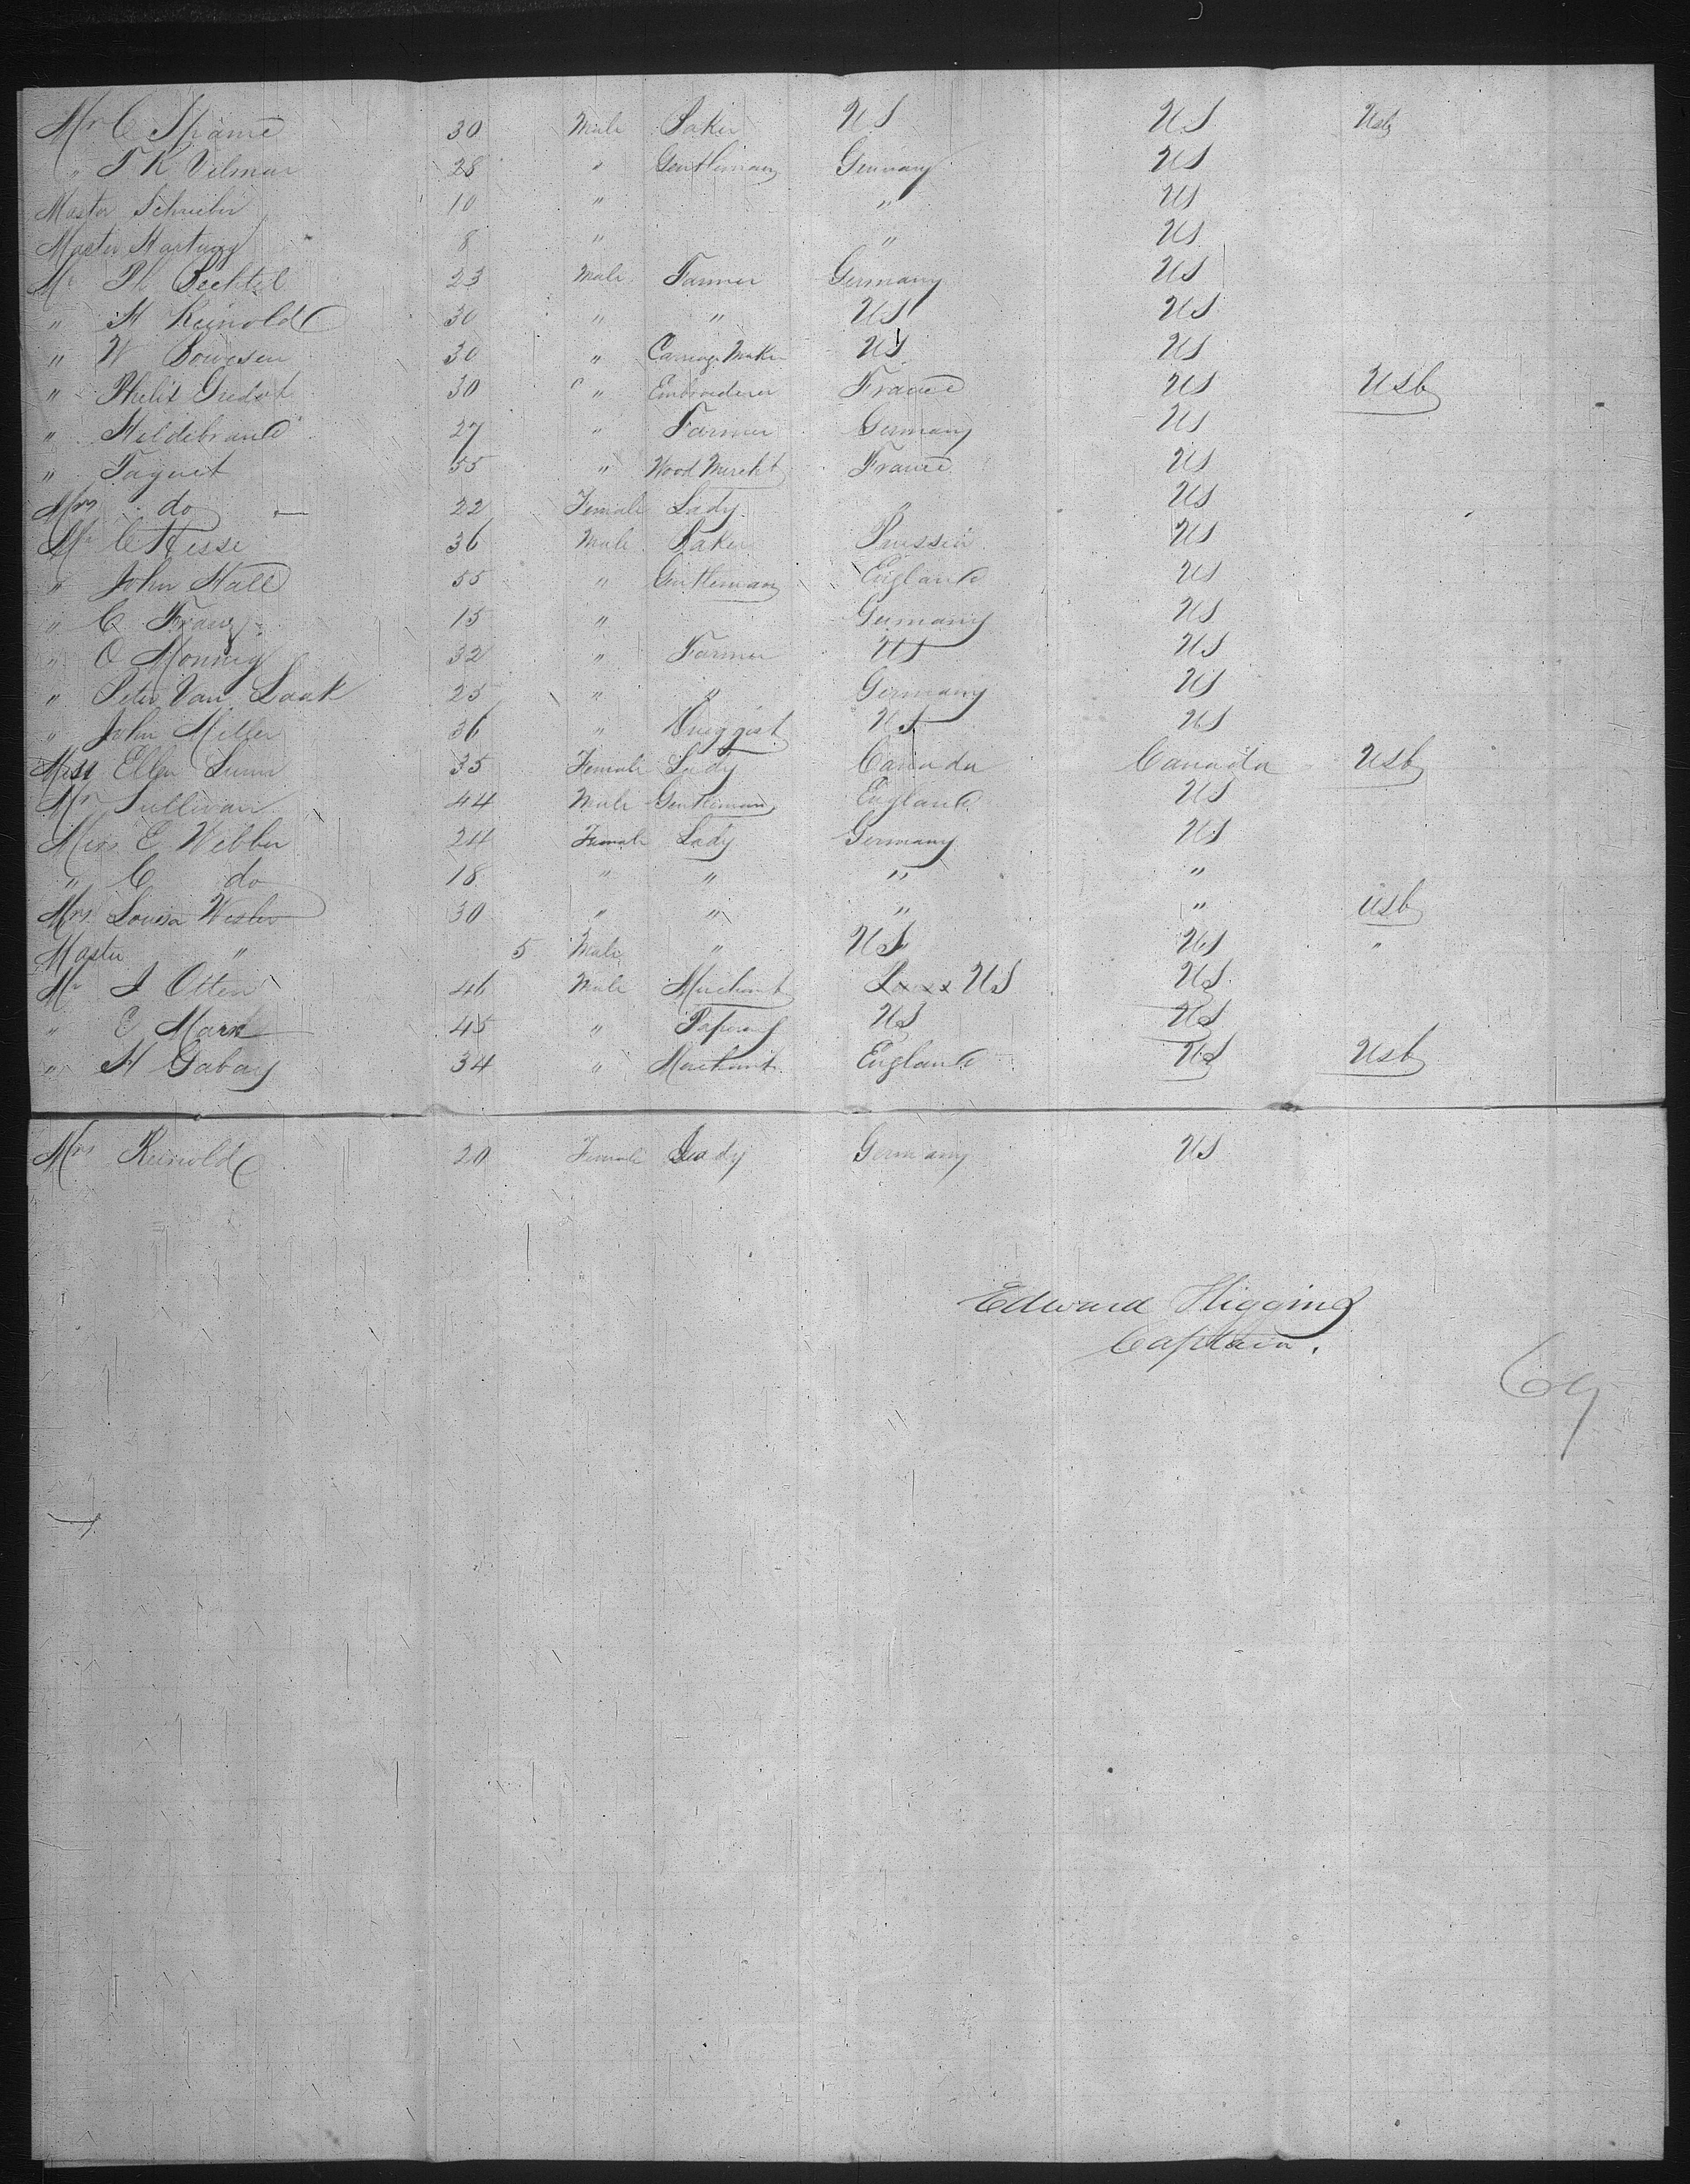 Mr C Spame 30 Male Baker US US Usb
" T K Vilmar 28 " Gentleman Germany US
Master Schrieber 10 " " US
Master Hartung 8 " " US
Mr Ph Bechtel 23 Male Farmer Germany US
" H Reinold 30 " " US US
" W 30 " Carriage Maker US US
" 30 " Embroiderer France US Usb
" Hildebrand 27 " Farmer Germany US
" Taquet 55 " Wood Mercht France US
Mrs do 22 Female Lady " US
Mr C Hesse 36 Male Baker Prussia US
" John Hall 55 " Gentleman England US
" C Franz 15 " Germany US
" O Monnig 32 " Farmer US US
" Peter Van Laak 25 " " Germany US
" John Miller 36 " Druggist US US
Miss Ellen 35 Female Lady Canada Canada Usb
Mr Sullivan 44 Male Gentleman England US
Miss E Webber 24 Female Lady Germany US
" C do 18 " " " "
Mrs Louisa Wesler 30 " " " " Usb
Master " 5 Male " US US "
Mr J Otten 46 Male Merchant US US
" C Mark 45 " US US
" H Gabay 34 " Merchant England US Usb
Mrs Reinold 20 Female Lady Germany US
Edward Higgins
Captain.
69